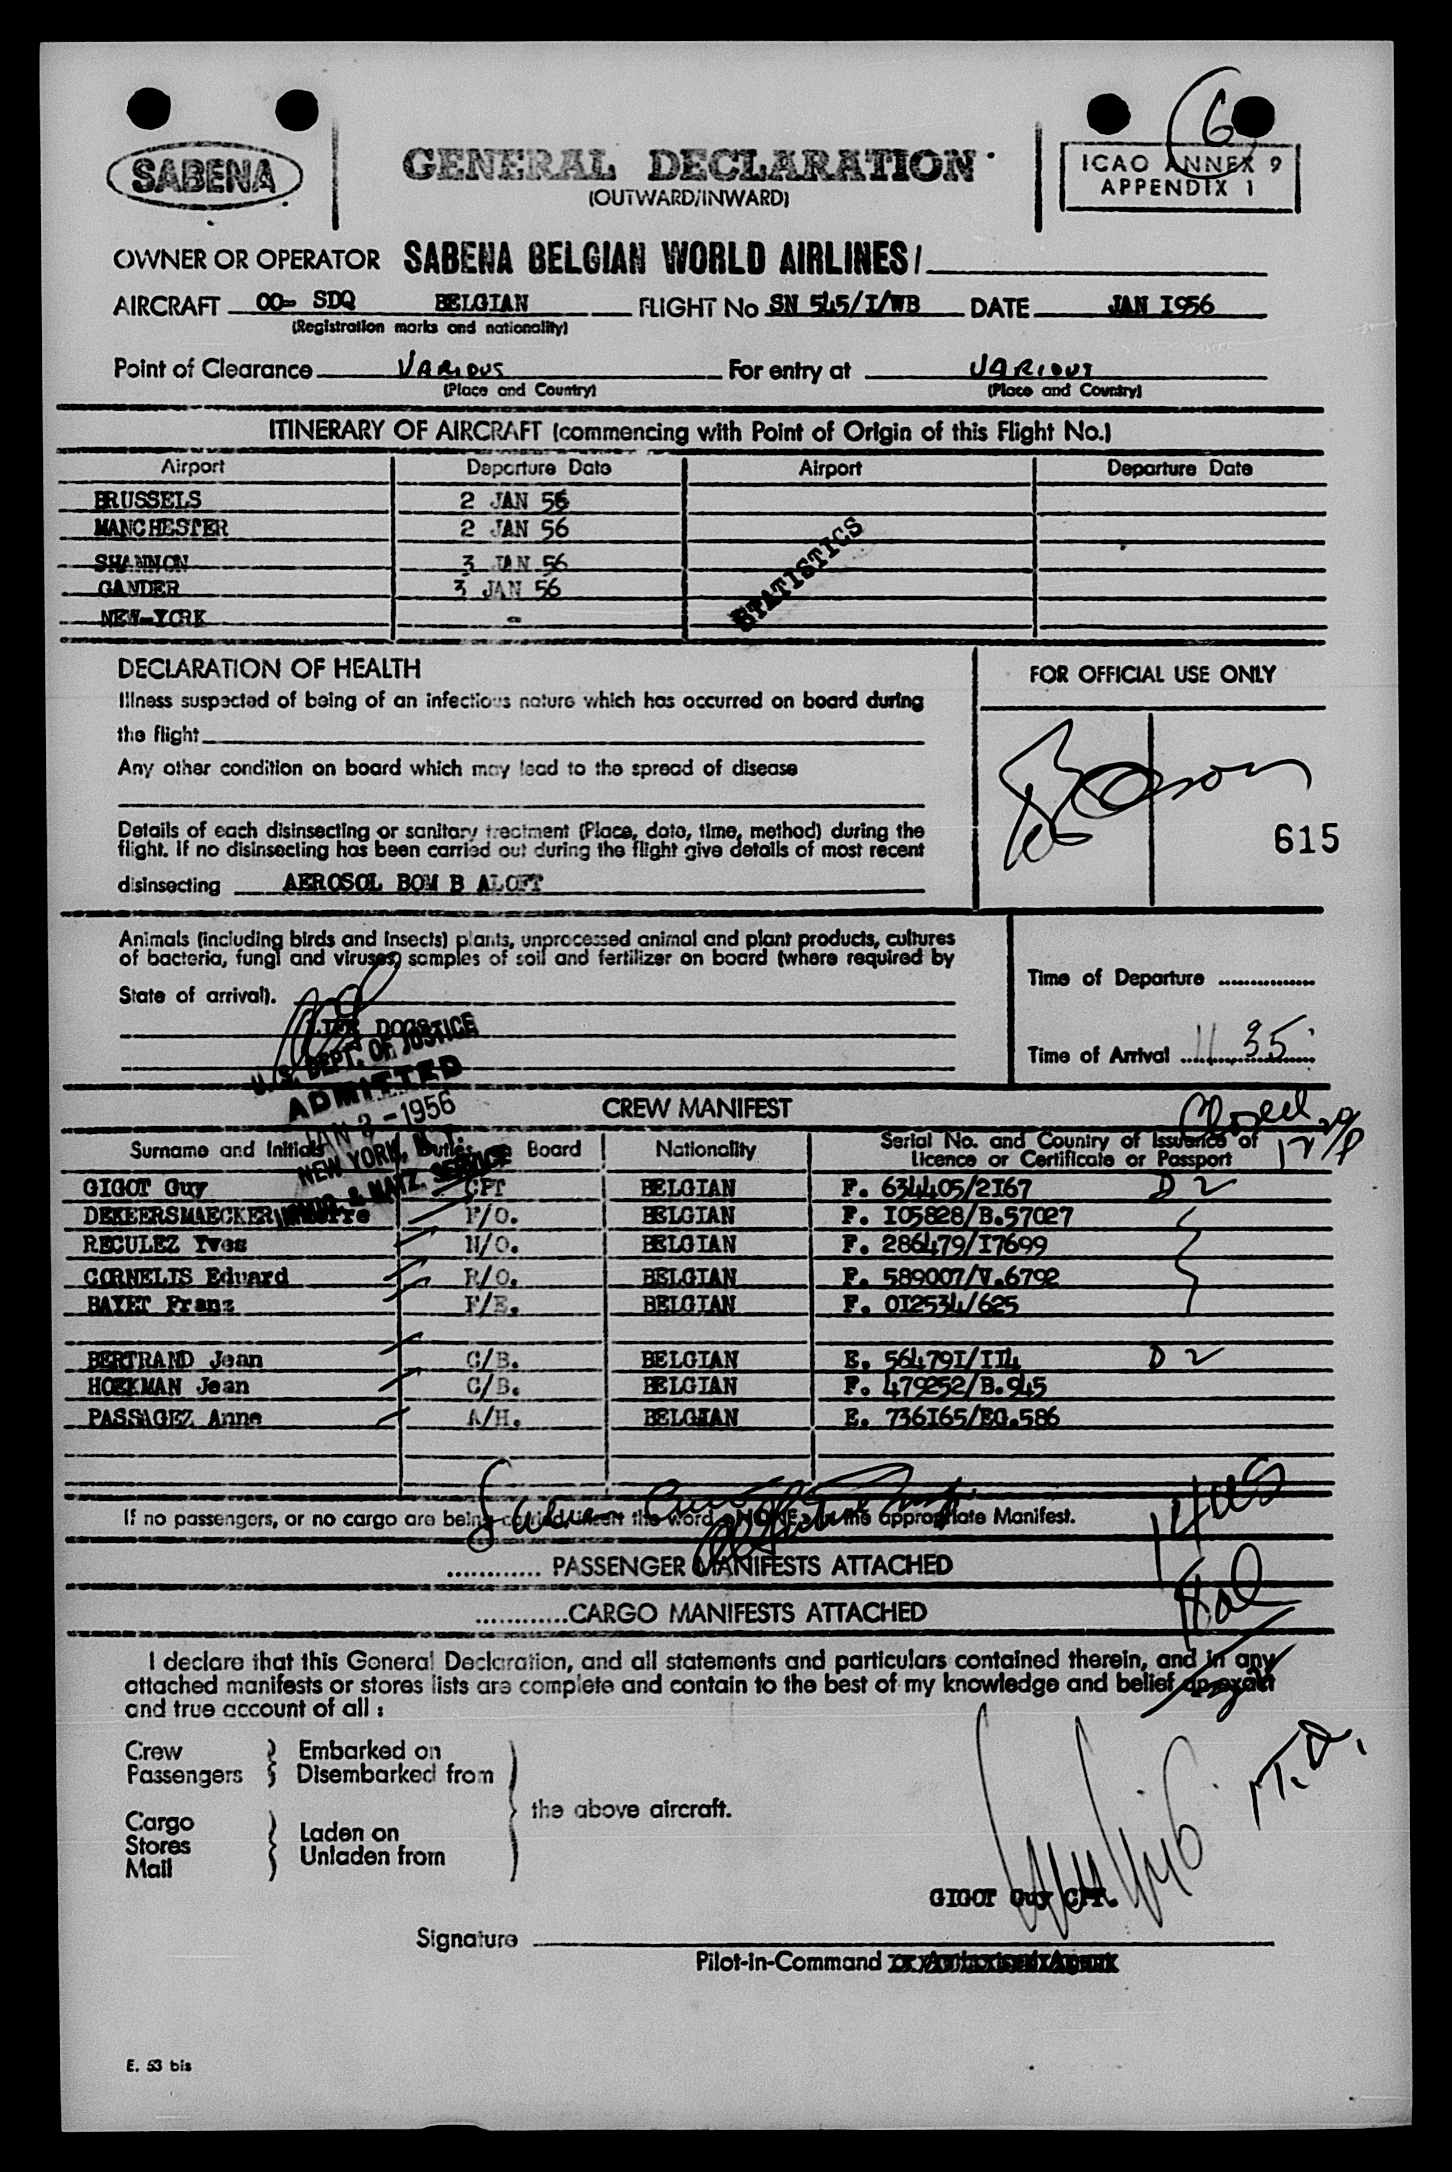 6
SABENA
GENERAL DECLARATION
(OUTWARD/INWARD)
ICAO ANNEX 9
APPENDIX 1
OWNER OR OPERATOR SABENA BELGIAN WORLD AIRLINES/
AIRCRAFT OO- SDQ BELGIAN FLIGHT No SN 545/I/WB DATE JAN I956
(Registration marks and nationality)
Point of Clearance VARIOUS For entry at VARIOUS
(Place and Country) (Place and Country)
ITINERARY OF AIRCRAFT (commencing with Point of Origin of this Flight No.)
Airport Departure Date Airport Departure Date
BRUSSELS 2 JAN 56
MANCHESTER 2 JAN 56
SHANNON 3 JAN 56
GANDER 3 JAN 56
NEW-YORK -
STATISTICS
DECLARATION OF HEALTH
Illness suspected of being of an infectious nature which has occurred on board during
the flight
Any other condition on board which may lead to the spread of disease
Details of each disinsecting or sanitary treatment (Place, date, time, method) during the
flight. If no disinsecting has been carried out during the flight give details of most recent
disinsecting AEROSOL BOM B ALOFT
FOR OFFICIAL USE ONLY
615
Animals (including birds and insects) plants, unprocessed animal and plant products, cultures
of bacteria, fungi and viruses, samples of soil and fertilizer on board (where required by
State of arrival).
Time of Departure ...............
Time of Arrival 11 35
U. S. DEPT. OF JUSTICE
ADMITTED
JAN 3 - 1956
NEW YORK, N. Y.
IMMIG. & NATZ. SERVICE
CREW MANIFEST
Surname and Initials Duties on Board Nationality Serial No. and Country of Issuance of
Licence or Certificate or Passport
GIGOT Guy CPT BELGIAN P. 634405/2I67 D 2
DEKEERSMAECKER Pierre F/O. BELGIAN P. I05828/B.57027
RECULEZ Yves N/O. BELGIAN P. 286479/I7699
CORNELIS Eduard R/O. BELGIAN P. 589007/V.6792
BAYET Franz F/E. BELGIAN P. 0I2534/625
BERTRAND Jean C/B. BELGIAN E. 56479I/II4 D 2
HOEKMAN Jean C/B. BELGIAN P. 479252/B.945
PASSAGEZ Anne A/H. BELGIAN E. 736I65/EG.586
If no passengers, or no cargo are being carried insert the word « NONE » in the appropriate Manifest.
............ PASSENGER MANIFESTS ATTACHED
............CARGO MANIFESTS ATTACHED
I declare that this General Declaration, and all statements and particulars contained therein, and in any
attached manifests or stores lists are complete and contain to the best of my knowledge and belief an exact
and true account of all :
Crew } Embarked on
Passengers } Disembarked from
the above aircraft.
Cargo
Stores } Laden on
Mail } Unladen from
GIGOT Guy CPT.
Signature
Pilot-in-Command
E. 53 bis